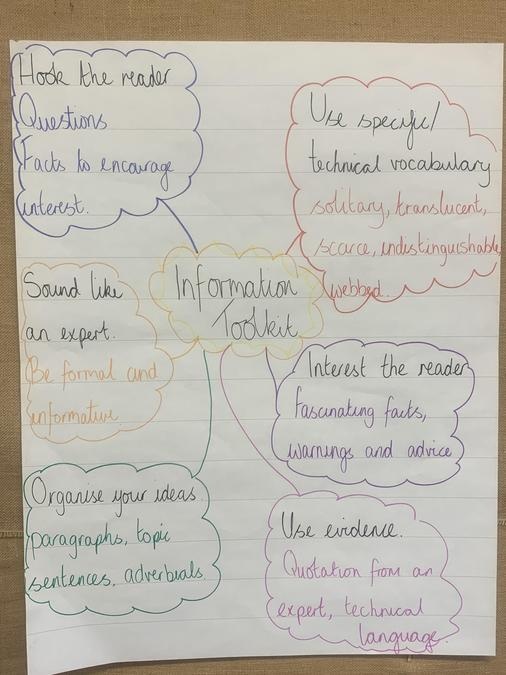 Hook the reader
Questions
Facts to encourage
interest.
Use specific/
technical vocabulary
solitary, translucent,
scarce, indistinguishable,
webbed.
Information
Toolkit
Sound like
an expert.
Be formal and
informative
Interest the reader
Fascinating facts,
warnings and advice
Organise your ideas.
paragraphs, topic
sentences, adverbials
Use evidence.
Quotation from an
expert, technical
language.